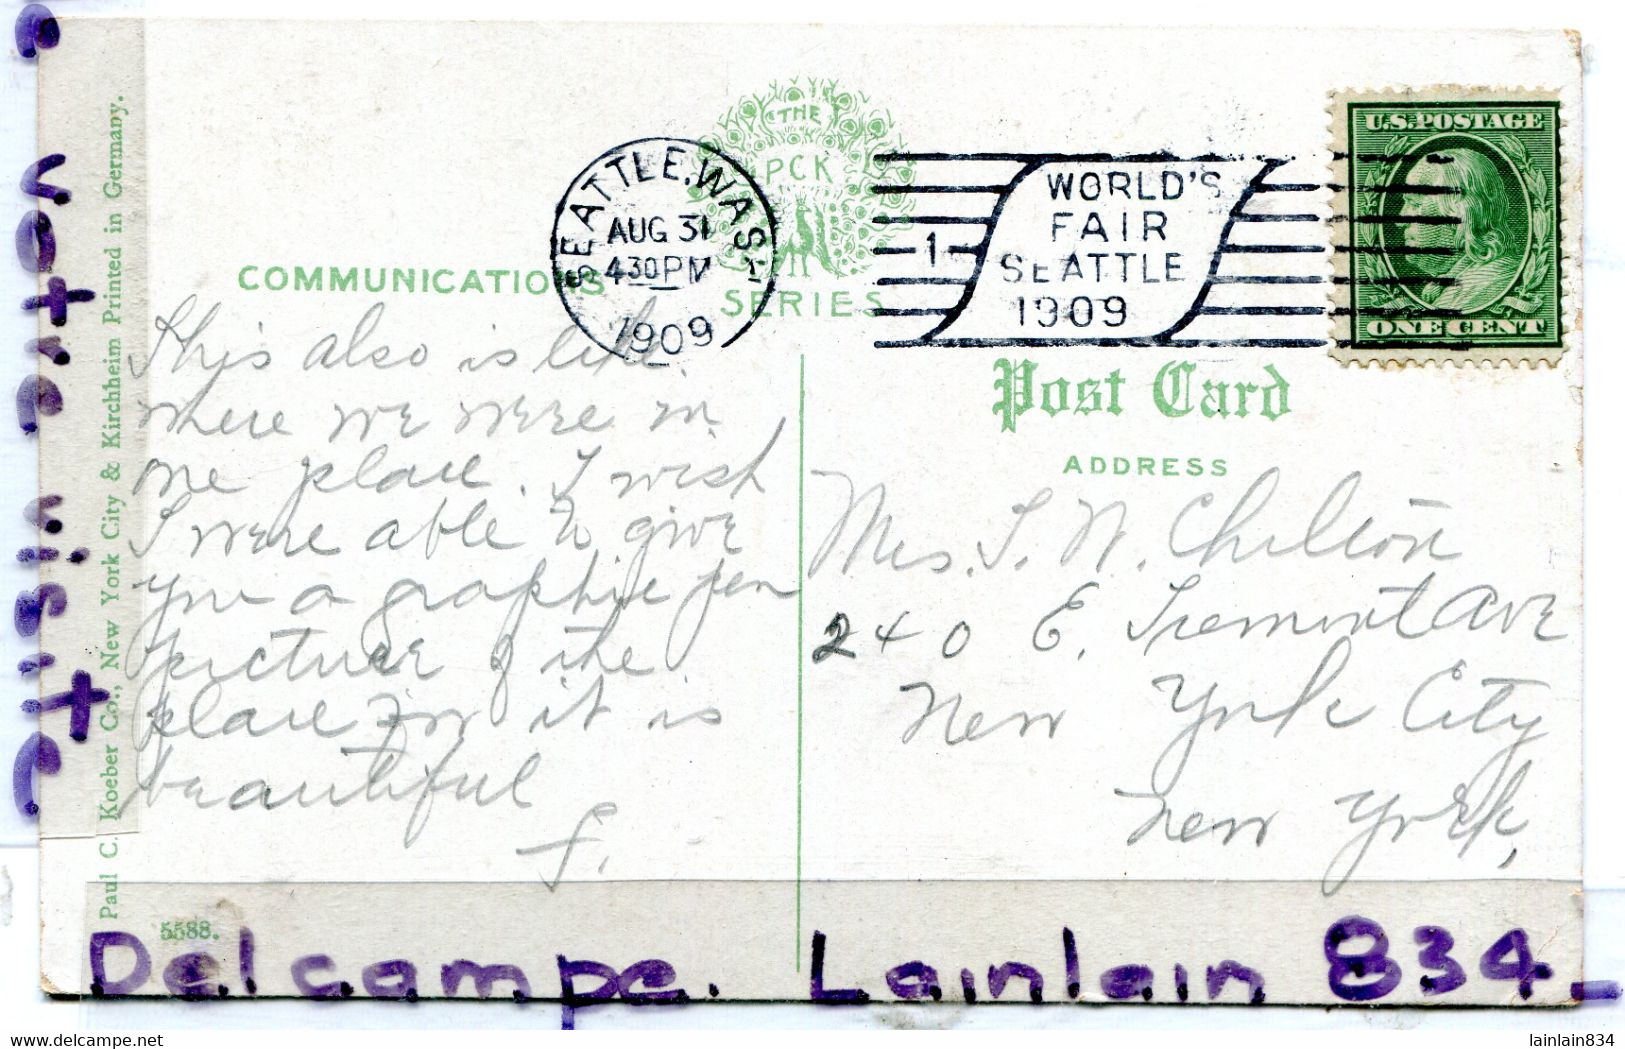 THE
PCK
SERIES
SEATTLE, WASH.
AUG 31
430 PM
1909
1
WORLD'S
FAIR
SEATTLE
1909
U.S. POSTAGE
ONE CENT
COMMUNICATIONS
Post Card
ADDRESS
This also is like
where we were in
one place. I wish
I were able to give
you a graphic pen
picture of the
place for it is
beautiful
Mrs. T. W. Chilton
240 E. Tremont Ave
New York City
New York,
Paul C. Koeber Co., New York City & Kirchheim Printed in Germany.
5588.
Votre visite
Delcampe. Lainlain 834
www.delcampe.net
lainlain834